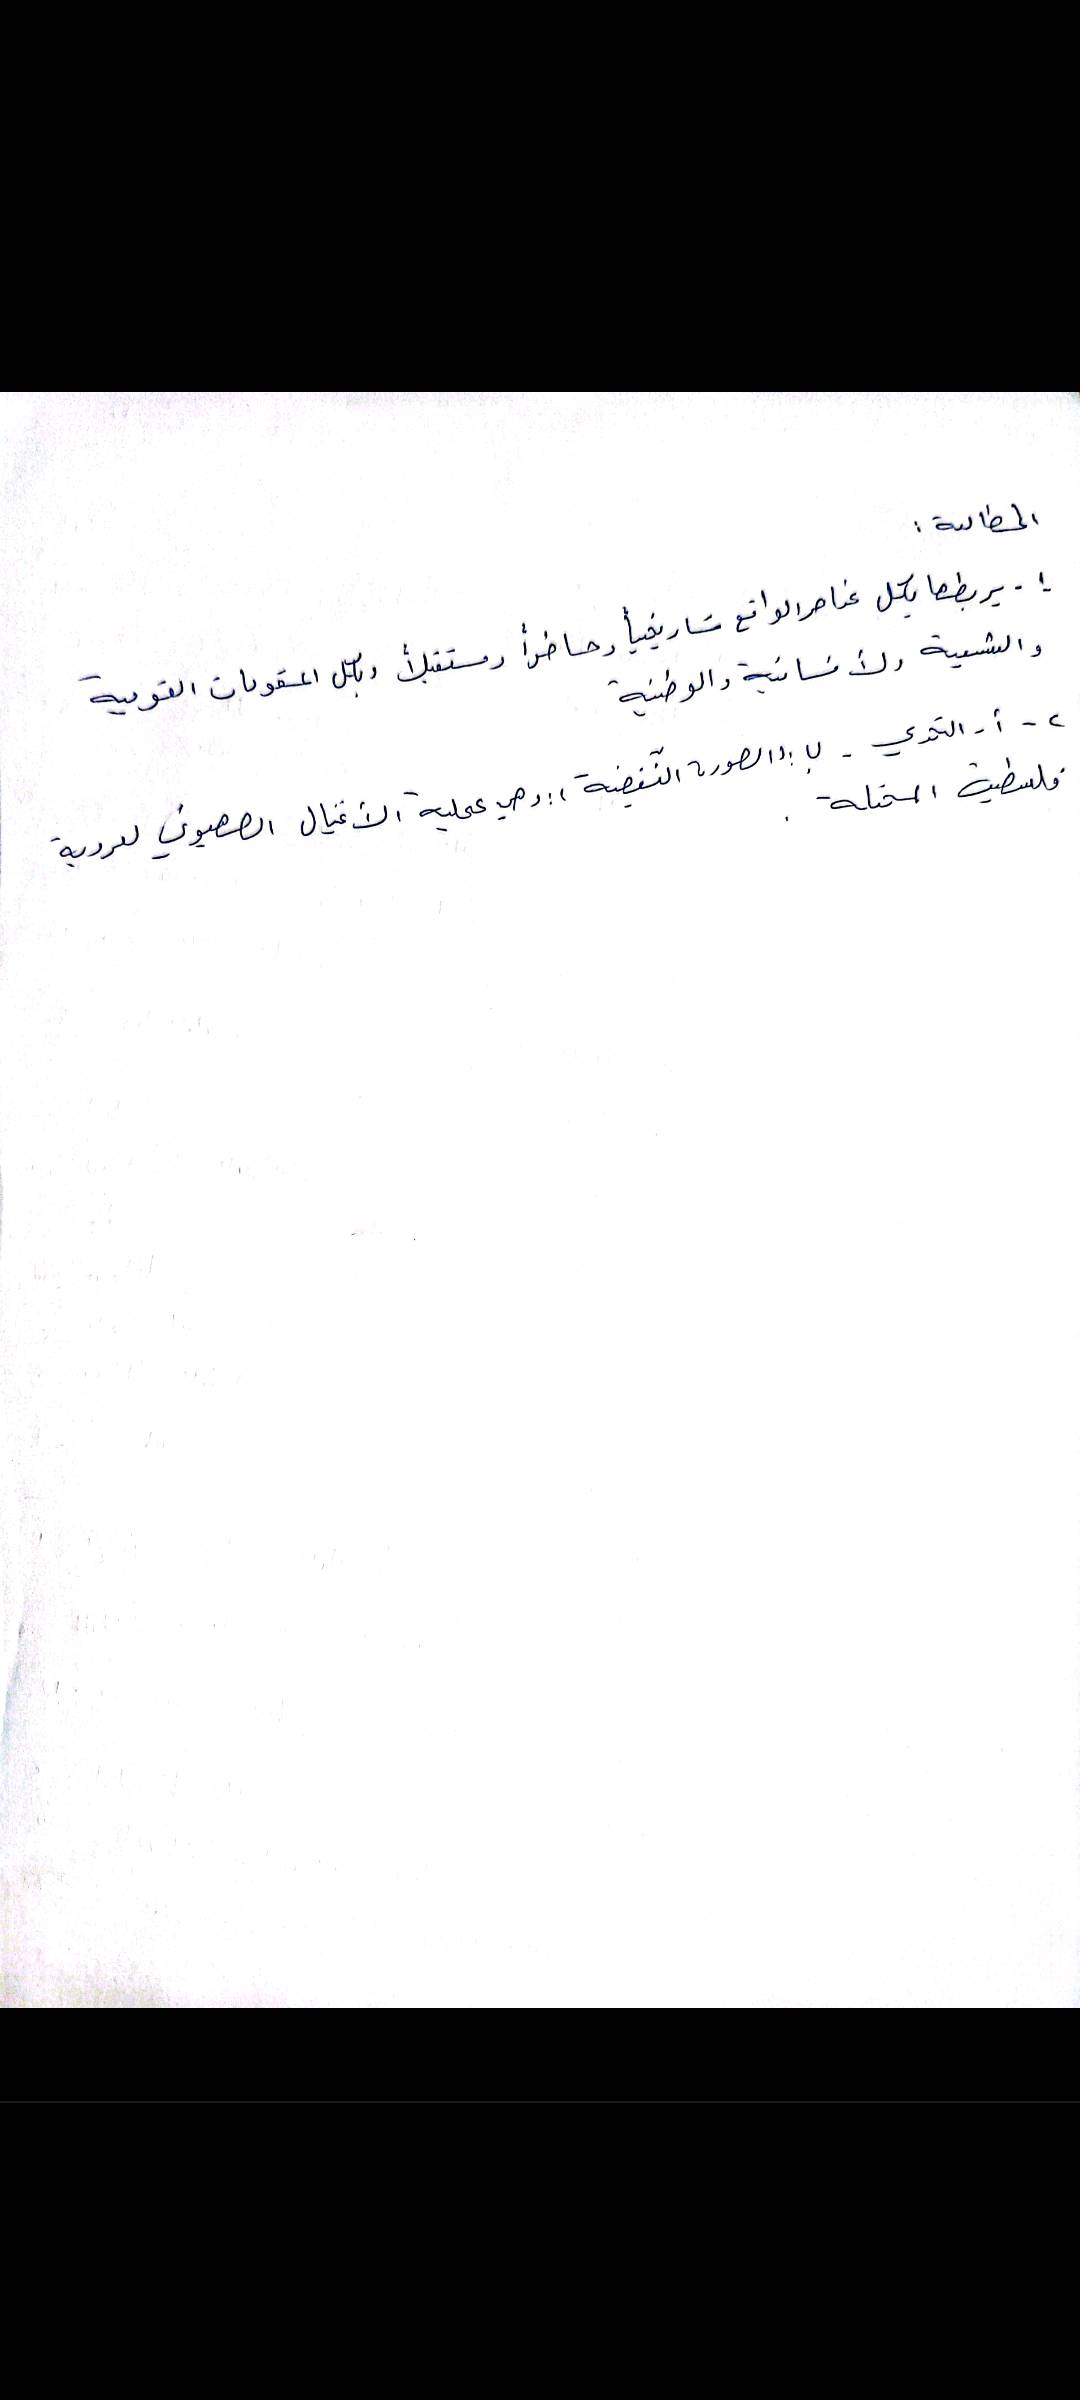 المطالعة :
١ - يربطها بكل عناصر الواقع تاريخياً وحاضراً ومستقبلاً وبكل المقومات القومية
والشعبية والأنسانية والوطنية
٢ - أ - التحدي - ب : " الصورة النقيضة " : وهي عملية الأغتيال الصهيوني لعروبة
فلسطين المحتلة .